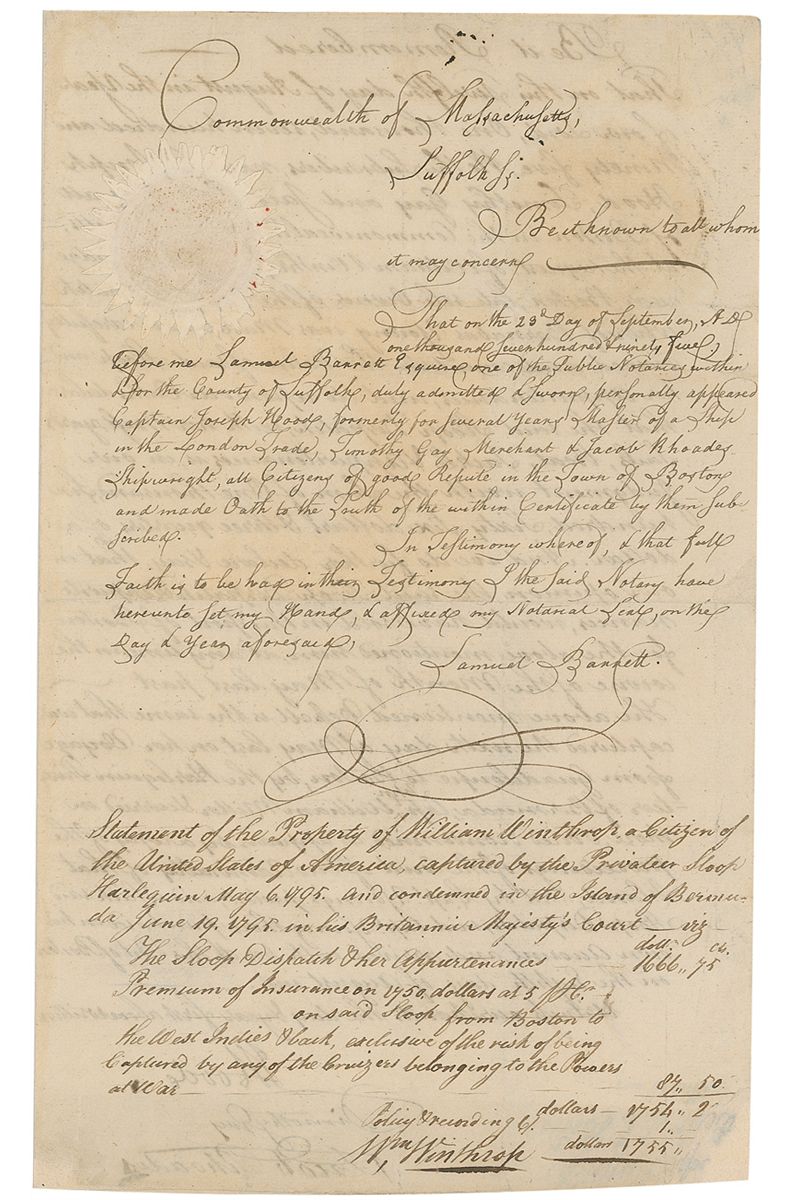 Commonwealth of Massachusetts,
Suffolk ss.
Be it known to all whom
it may concern
That on the 23d Day of September, A D
one thousand seven hundred & ninety five,
before me Samuel Barrett Esquire one of the Public Notaries within
& for the County of Suffolk, duly admitted & sworn, personally appeared
Captain Joseph Hood, formerly for several Years Master of a Ship
in the London Trade, Timothy Gay Merchant & Jacob Rhoades
Shipwright, all Citizens of good Repute in the Town of Boston
and made Oath to the Truth of the within Certificate by them Sub-
scribed.
In Testimony whereof, & that full
Faith is to be had in their Testimony I the said Notary have
hereunto set my Hand, & affixed my Notarial Seal, on the
Day & Year aforesaid,
Samuel Barrett.
Statement of the Property of William Winthrop, a Citizen of
the United States of America, captured by the Privateer Sloop
Harlequin May 6. 1795. and condemned in the Island of Bermu-
da June 19. 1795. in his Britannic Majesty's Court — viz
doll.s cts.
The Sloop Dispatch & her Appurtenances 1666,, 75
Premium of Insurance on 1750. dollars at 5 
on said Sloop from Boston to
the West Indies & back, exclusive of the risk of being
Captured by any of the Cruizers belonging to the Powers
at War 87,, 50
dollars — 1754,, 2
Policy & recording 1,,
Wm. Winthrop dollars 1755,,